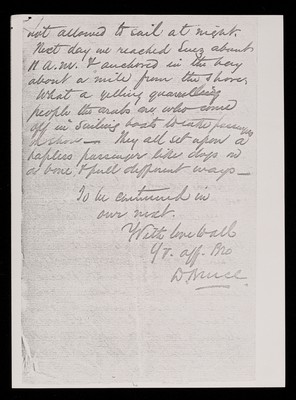 not allowed to sail at night.
Next day we reached Suez about
11 A.M. & anchored in the bay
about a mile from the shore.
What a yelling quarrelling
people the arabs are who come
off in sailing boats to take passengers
on shore — They all set upon a
hapless passenger like dogs on
a bone & pull different ways —
To be continued in
our next.
With love to all
Yr. aff. Bro
D Bruce